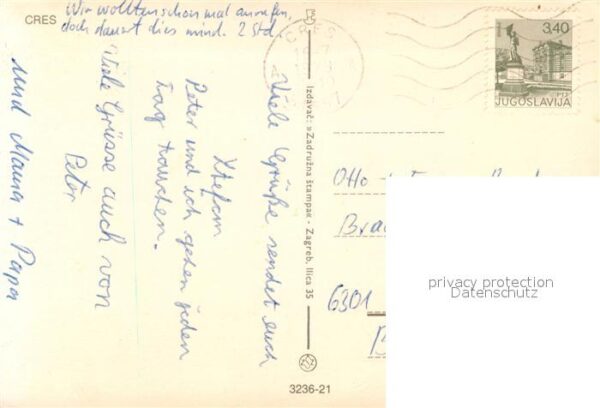 CRES
Wir wollten schon mal anrufen,
doch dauert dies mind. 2 Std.
Viele Grüße sendet euch
Stefan
Peter und ich gehen jeden
Tag tauchen.
Viele Grüsse auch von
Peter
und Mama + Papa
Izdavač: »Zadružna štampa« - Zagreb, Ilica 35
3236-21
CRES
3,40
JUGOSLAVIJA
Otto
Bra
6301
B
privacy protection
Datenschutz